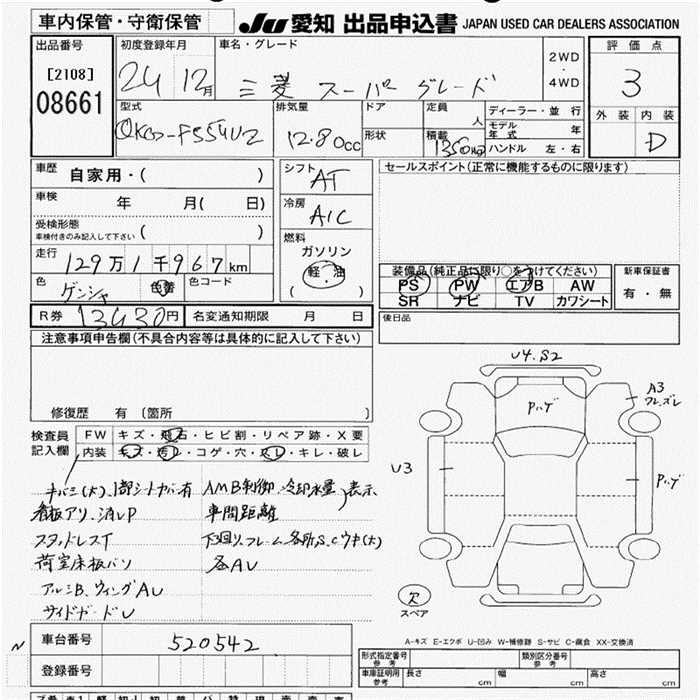 車内保管・守衛保管 JU 愛知 出品申込書 JAPAN USED CAR DEALERS ASSOCIATION
出品番号 初度登録年月 車名・グレード 評価点
[2108] 24 12月 三菱 スーパーグレード 2WD・4WD 3
08661 型式 排気量 ドア 定員 人 ディーラー・並行 外装 内装
12.80cc 形状 積載 モデル年式 年 D
ハンドル 左・右
車歴 自家用・( ) シフト AT セールスポイント(正常に機能するものに限ります)
車検 年 月( 日) 冷房 A/C
受検形態
車検付きのみ記入して下さい ( ) 燃料
走行 129万1千967km ガソリン
軽・油
( )
装備品(純正品に限り○をつけてください) 新車保証書
色 ゲンシャ 色替 色コード PS PW エアB AW 有・無
SR ナビ TV カワシート
R券 13430円 名変通知期限 月 日 後日品
注意事項申告欄(不具合内容等は具体的に記入して下さい)
修復歴 有 (箇所 )
U4.S2
Pハゲ
A3
U3
Pハゲ
検査員 FW キズ・飛石・ヒビ割・リペア跡・X要
記入欄 内装 キズ・汚レ・コゲ・穴・スレ・キレ・破レ
キバミ(大)、1部シートカバー有 AMB制御、冷却水量)表示
看板アリ、消しP 車間距離
スタッドレスT 下回り、フレーム各所S、C
荷室床板バソ 各AU
アルミB、ウィングAU
サイドガードU
R
スペア
N
車台番号 520542
登録番号
A-キズ E-エクボ U-凹み W-補修跡 S-サビ C-腐食 XX-交換済
形式指定番号 参考 類別区分番号 参考
車庫証明用 参考 長さ cm 幅 cm 高さ cm